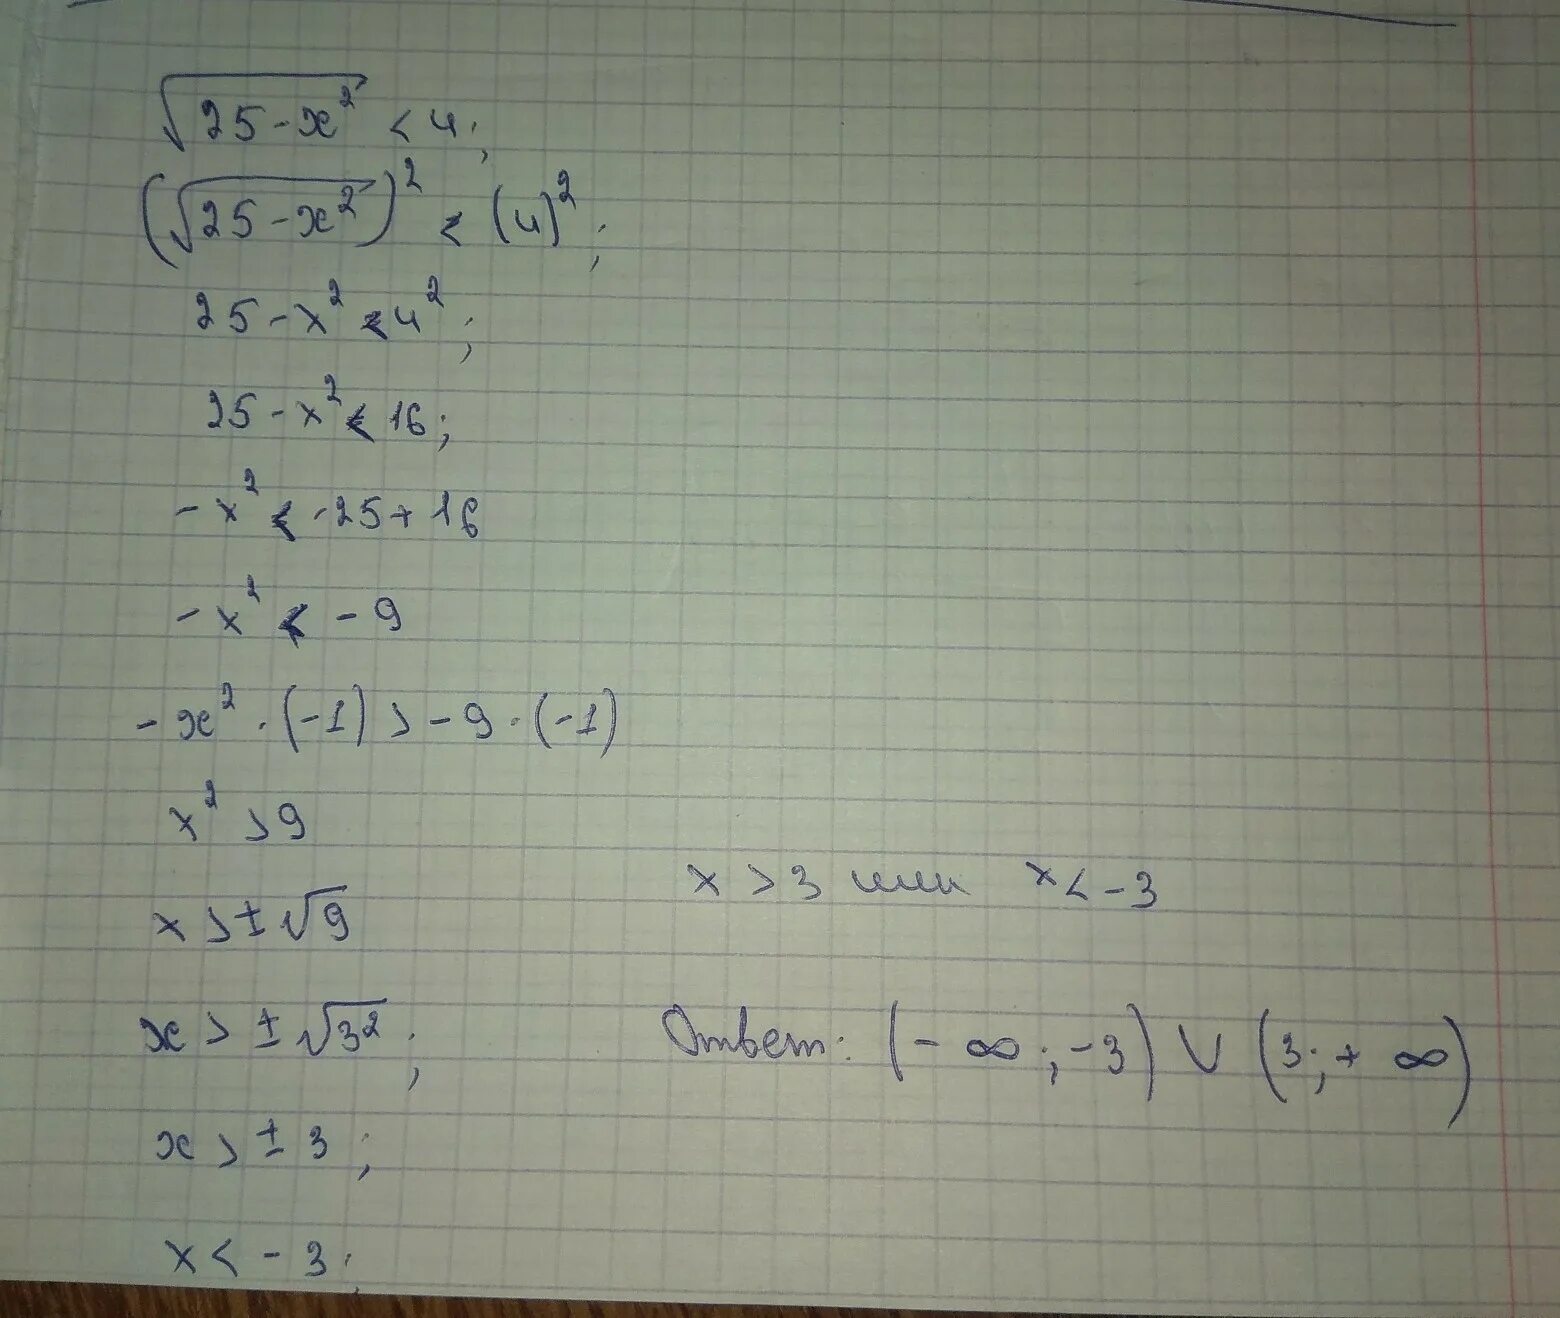 √25-x² < 4;
(√25-x²)² < (4)²;
25-x² < 4²;
25-x² < 16;
-x² < -25+16
-x² < -9
-x² · (-1) > -9 · (-1)
x² > 9
x > ± √9
x > 3 или x < -3
x > ± √3²;
Ответ: (-∞; -3) ∪ (3; +∞)
x > ± 3;
x < -3;